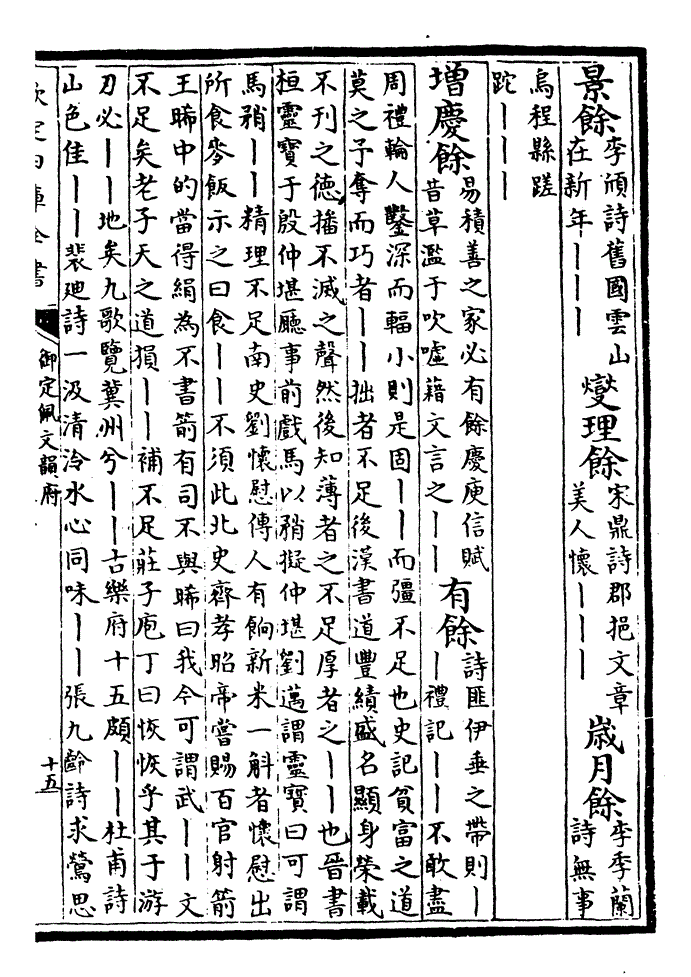 景餘李頎詩舊國雲山
在新年丨丨丨
燮理餘宋鼎詩郡挹文章
美人懷丨丨丨
歲月餘李季蘭
詩無事
烏程縣蹉
跎丨丨丨
增慶餘易積善之家必有餘慶庾信賦
昔草濫于吹噓藉文言之丨丨
有餘詩匪伊垂之帶則丨
丨禮記丨丨不敢盡
周禮輪人鑿深而輻小則是固丨丨而彊不足也史記貧富之道
莫之予奪而巧者丨丨拙者不足後漢書道豐績盛名顯身榮載
不刊之德播不滅之聲然後知薄者之不足厚者之丨丨也晉書
桓靈寶于殷仲堪廳事前戲馬以矟擬仲堪劉邁謂靈寶曰可謂
馬矟丨丨精理不足南史劉懷慰傳人有餉新米一斛者懷慰出
所食麥飯示之曰食丨丨不須此北史齊孝昭帝嘗賜百官射箭
王晞中的當得絹為不書箭有司不與晞曰我今可謂武丨丨文
不足矣老子天之道損丨丨補不足莊子庖丁曰恢恢乎其于游
刃必丨丨地矣九歌覽冀州兮丨丨古樂府十五頗丨丨杜甫詩
山色佳丨丨裴廸詩一汲清泠水心同味丨丨張九齡詩求鶯思
欽定四庫全書
御定佩文韻府
十五